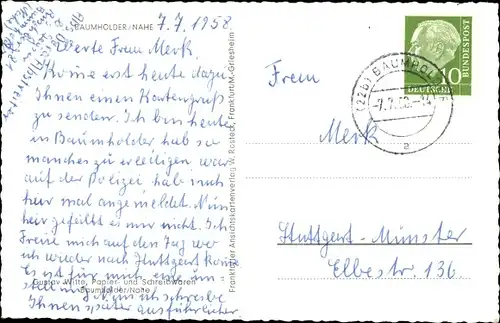 BAUMHOLDER/NAHE 7.7.1958.
Werte Frau Merk,
Komme erst heute dazu
Ihnen einen Kartengruß
zu senden. Ich bin heute
in Baumholder hab so
manches zu erledigen war
auf der Polizei hab mich
hier mal angemeldet. Nun
hier gefällt es mir nicht. Ich
Freue mich auf den Tag wo
ich wieder nach Stuttgart komme
Es ist für mich eine Um-
stellung. Nun ich schreibe
Ihnen später ausführlicher
Gustav Witte, Papier- und Schreibwaren
Baumholder/Nahe
Frankfurter Ansichtskartenverlag W. Rostock, Frankfurt/M.-Griesheim
Frau
Merk
Stuttgart-Münster
Elbestr. 136
(22b) BAUMHOLDER
-7.7.58-
a
10
DEUTSCHE
BUNDESPOST